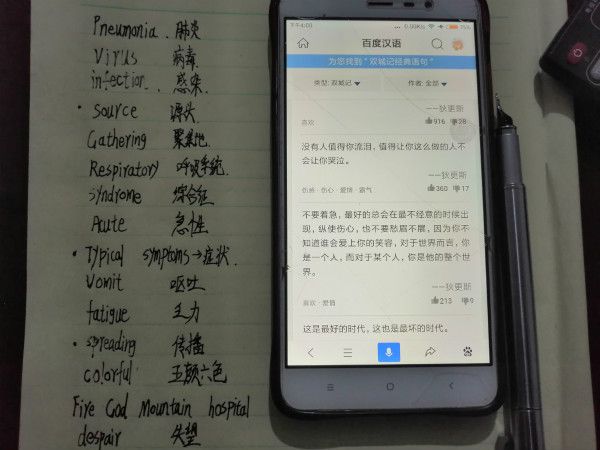 Pneumonia 肺炎
Virus 病毒
infection 感染
· Source 源头
Gathering 聚集地
Respiratory 呼吸系统
Syndrome 综合征
Acute 急性
· Typical symptoms→症状
Vomit 呕吐
fatigue 乏力
· spreading 传播
colorful 五颜六色
Fire God Mountain hospital
despair 失望
下午4:00
百度汉语
为您找到“双城记经典语句”
类型: 双城记
作者: 全部
——狄更斯
喜欢
916
28
没有人值得你流泪，值得让你这么做的人不
会让你哭泣。
——狄更斯
伤感·伤心·爱情·霸气
360
17
不要着急，最好的总会在最不经意的时候出
现，纵使伤心，也不要愁眉不展，因为你不
知道谁会爱上你的笑容，对于世界而言，你
是一个人，而对于某个人，你是他的整个世
界。
——狄更斯
喜欢·爱情
213
9
这是最好的时代，这也是最坏的时代。